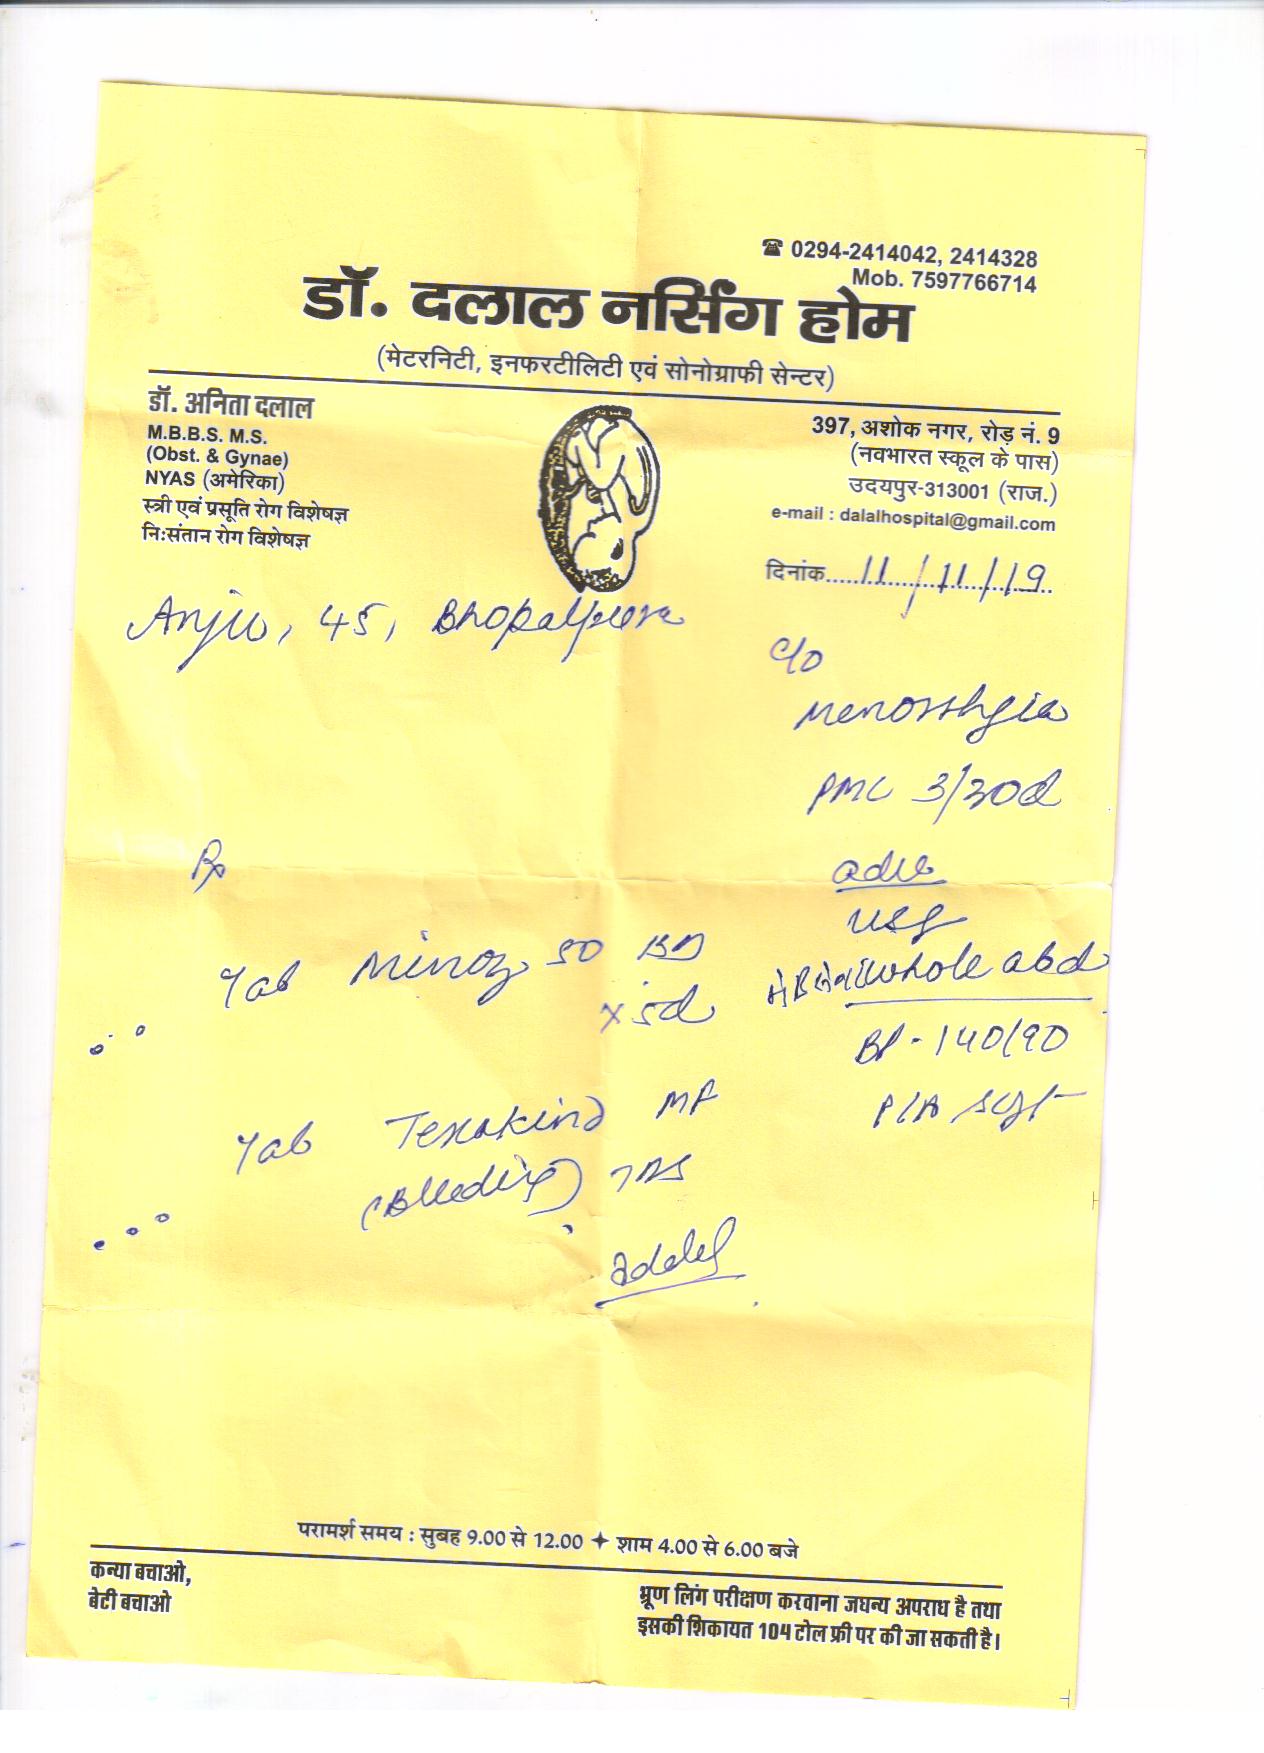 ☎ 0294-2414042, 2414328
Mob. 7597766714
डॉ. दलाल नर्सिंग होम
(मेटरनिटी, इनफरटीलिटी एवं सोनोग्राफी सेन्टर)
डॉ. अनिता दलाल
M.B.B.S. M.S.
(Obst. & Gynae)
NYAS (अमेरिका)
स्त्री एवं प्रसूति रोग विशेषज्ञ
निःसंतान रोग विशेषज्ञ
397, अशोक नगर, रोड़ नं. 9
(नवभारत स्कूल के पास)
उदयपुर-313001 (राज.)
e-mail : dalalhospital@gmail.com
दिनांक.....11/11/19
Anju, 45, Bhopalpura
C/o
Menorrhgia
PMC 3/30d
Rx
adv
USG
whole abd
BP - 140/90
P/A soft
Tab Minoz 50 BD
x 5d
Tab Texakind MF
(Bleeding) TDS
परामर्श समय : सुबह 9.00 से 12.00 ✦ शाम 4.00 से 6.00 बजे
कन्या बचाओ,
बेटी बचाओ
भ्रूण लिंग परीक्षण करवाना जघन्य अपराध है तथा
इसकी शिकायत 104 टोल फ्री पर की जा सकती है।